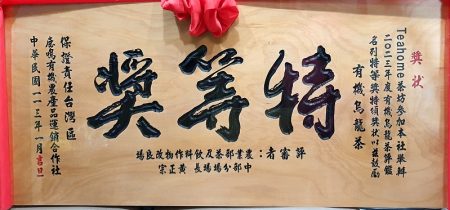 獎狀
Teahome茶坊參加本社舉辦
二〇二三年度有機烏龍茶評鑑
名列特等獎特頒獎狀以茲鼓勵
有機烏龍茶
特等獎
評審者：農業部茶及飲料作物改良場
中部分場場長 黃正宗
保證責任台灣區
鹿鳴有機農產品運銷合作社
中華民國一一三年一月吉日